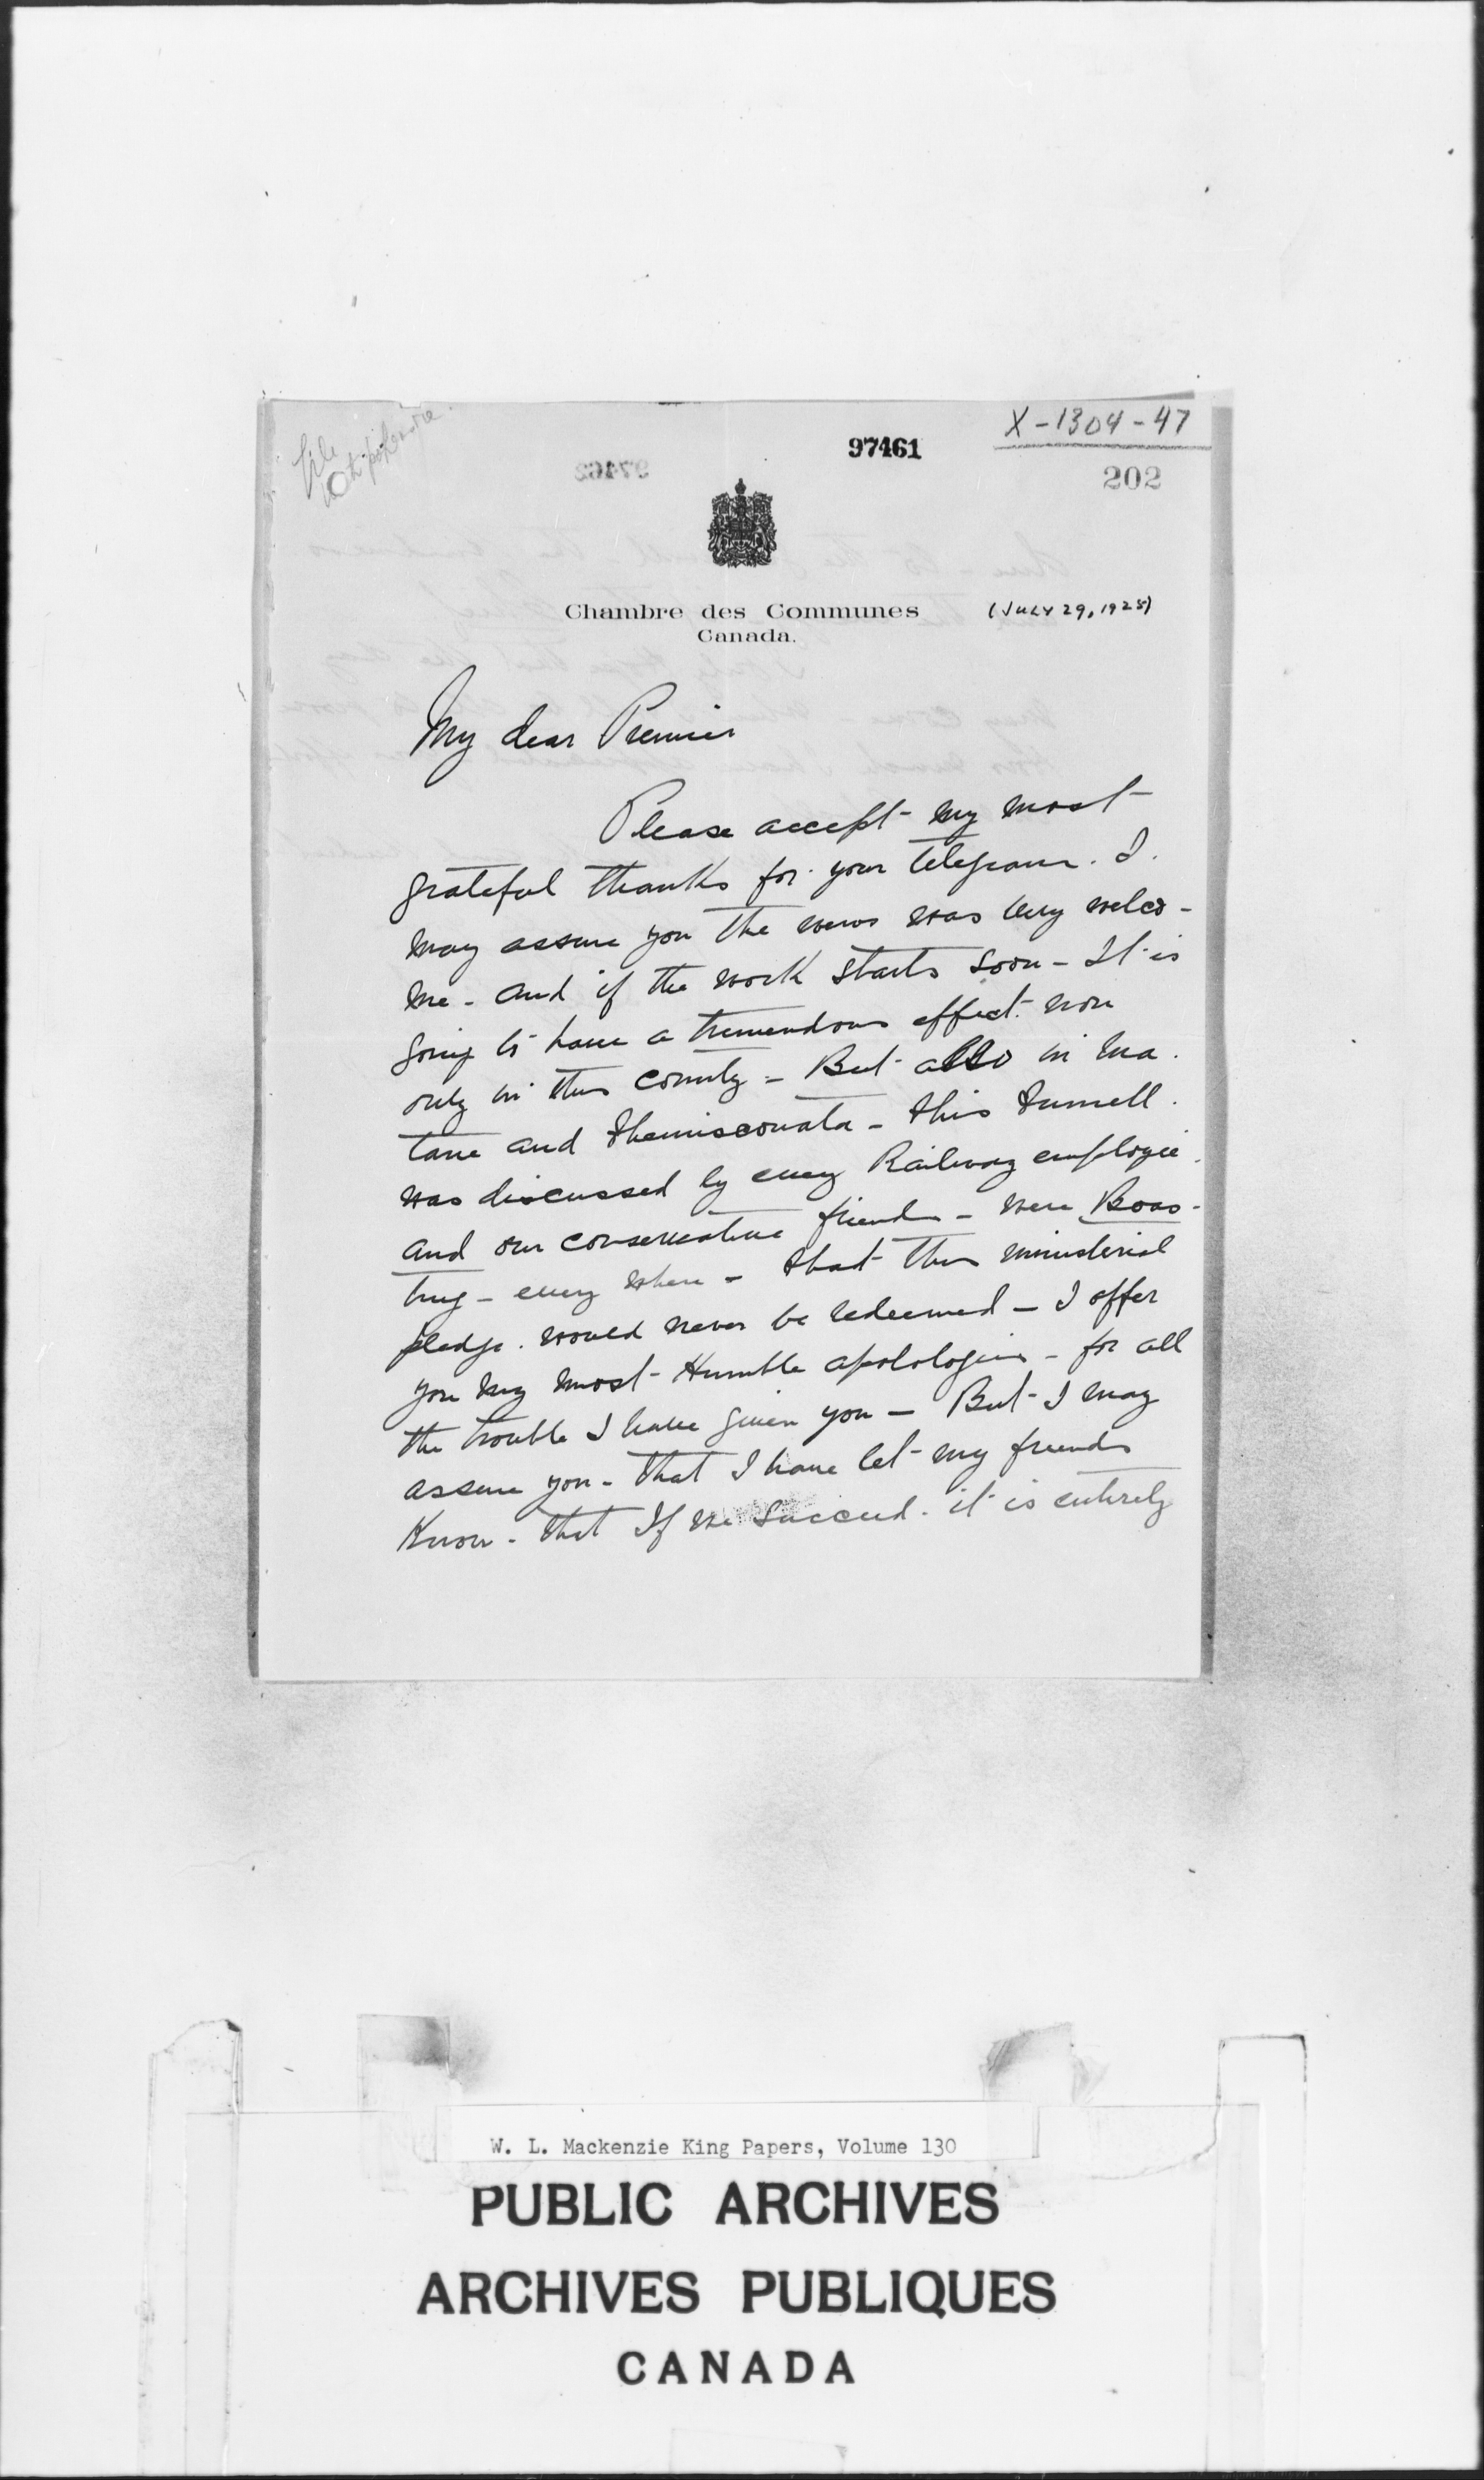 File
X-1304-47
97461
97462
202
Chambre des Communes
(July 29, 1928)
Canada.
My dear Premier
Please accept my most
grateful thanks for your telegram. I
may assure you the news was very welco-
me - and if the work starts soon - It is
going to have a tremendous effect non
only in this county - But also in Ma
tane and Themiscouata - This Tunnell
was discussed by every Railway employee
and our conservative friends - were Boas-
ting - every where - that this ministerial
pledge would never be redeemed - I offer
you my most Humble apolologies - for all
the trouble I have given you - But I may
assure you - that I have let my friends
Know - that If we succeed - it is entirely
W. L. Mackenzie King Papers, Volume 130
PUBLIC ARCHIVES
ARCHIVES PUBLIQUES
CANADA